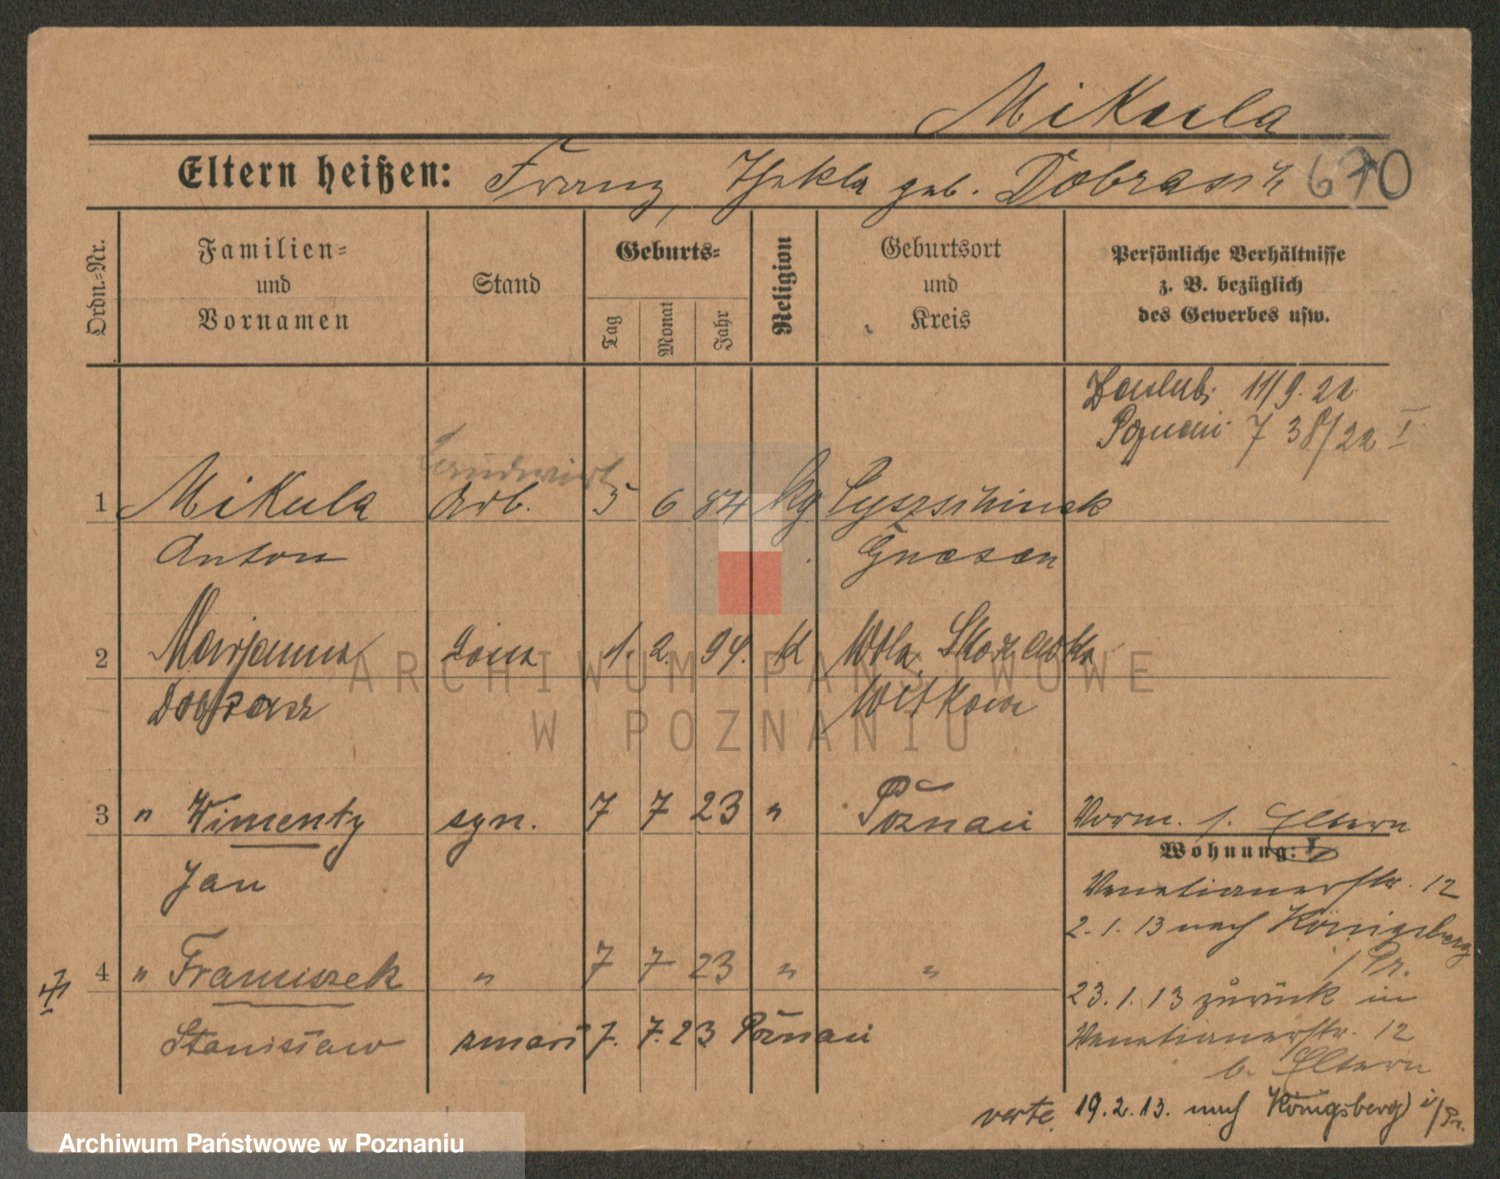 Mikula
Eltern heißen: Franz, Thekla geb. Dobrasik 670
Ordn.=Nr.
Familien=
und
Vornamen
Stand
Geburts=
Tag
Monat
Jahr
Religion
Geburtsort
und
Kreis
Persönliche Verhältnisse
z. B. bezüglich
des Gewerbes usw.
11/9.22
Poznań 7 38/22 I
Landwirt
1 Mikula Arb. 5 6 84 kg
Anton Gnesen
2 Marjanna żona 1. 2. 94. k
Witkowo
3 " syn. 7 7 23 " Poznań Vorm. s. Eltern
Wohnung:
Jan
Venetianerstr. 12
2. 1. 13 nach Königsberg
i/Pr.
4 " Franciszek " 7 7 23 " "
23. 1. 13 zurück in
Stanisław zmarł 7. 7. 23 Poznań
Venetianerstr. 12
b. Eltern
verte 19. 2. 13. nach Königsberg i/Pr.
ARCHIWUM PAŃSTWOWE
W POZNANIU
Archiwum Państwowe w Poznaniu